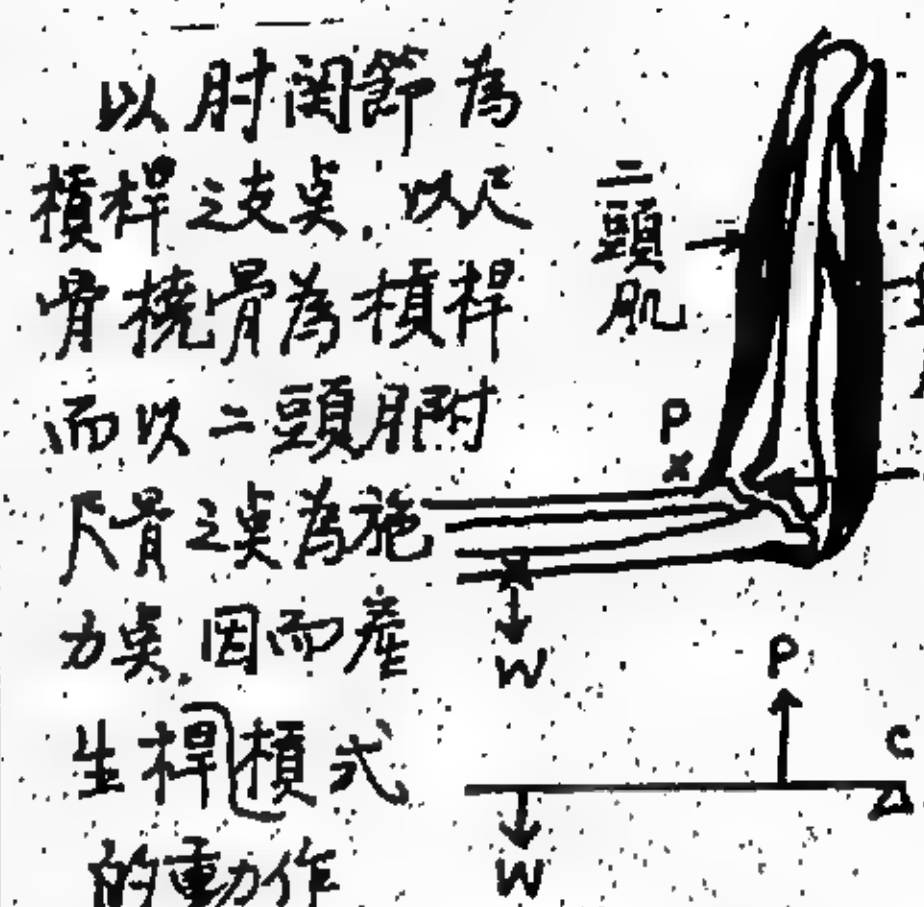 以肘関節為
槓桿之支奌.以尺
骨橈骨為槓桿
而以二頭肌附
尺骨之奌為施
力奌.因而產
生桿槓式
的動作
二頭肌
P
W
P
C
W